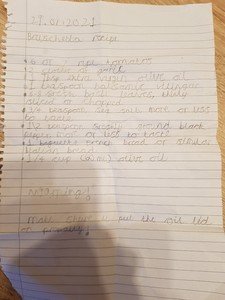 28.01.2021
Bruschetta recipe
6 or 7 ripe tomatoes
2 cloves of garlic
1 tbsp extra virgin olive oil
1 teaspoon balsamic vinegar
6-8 fresh basil leaves, thinly
sliced or chopped
3/4 teaspoon sea salt more or less
to taste
1/2 teaspoon freshly ground black
pepper more or less to taste
1 baguette french bread or similar
Italian bread
1/4 cup (60 ml) olive oil
Warning!
Make sure to put the oil lid
on properly!